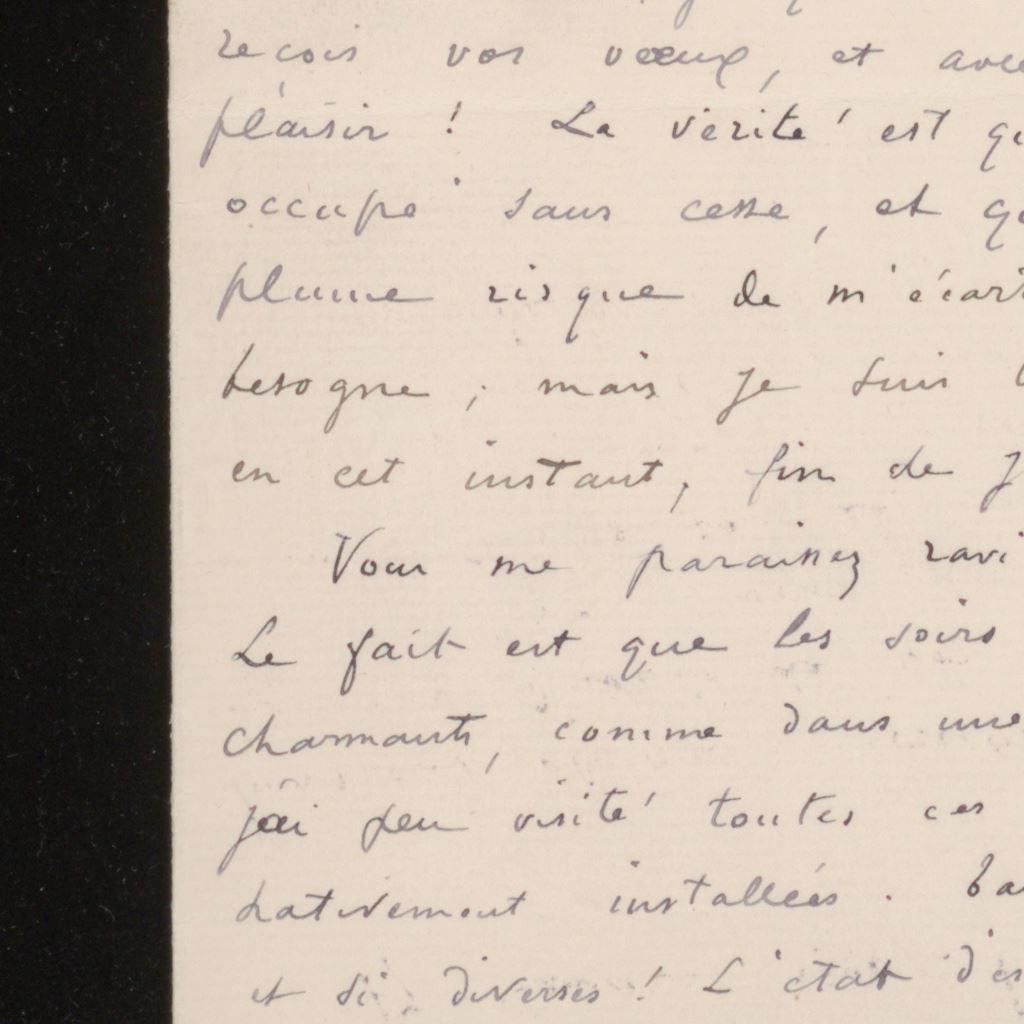 recois vos vœux, et avec
plaisir ! La vérité est qu
occupé sans cesse, et qu
plume risque de m'écart
besogne ; mais je suis
en cet instant, fin de j
Vous me paraissez ravi
Le fait est que les soirs
charmants, comme dans une
j'ai peu visité toutes ces
hativement installées.
et si diverses ! L'état d'es